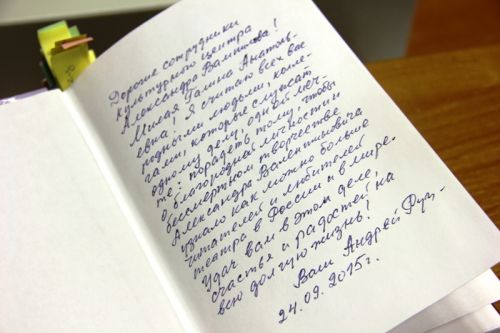 Дорогие сотрудники
культурного центра
Александра Вампилова!
Милая Галина Анатоль-
евна! Я считаю всех вас
родными людьми, колле-
гами, которые служат
одному делу, одной меч-
те: порадеть тому, чтобы
о благородной личности и
бессмертном творчестве
Александра Валентиновича
узнало как можно больше
читателей и любителей
театра в России и в мире.
Удач вам в этом деле,
счастья и радостей на
всю долгую жизнь!
Ваш Андрей Рум-
24.09.2015г.